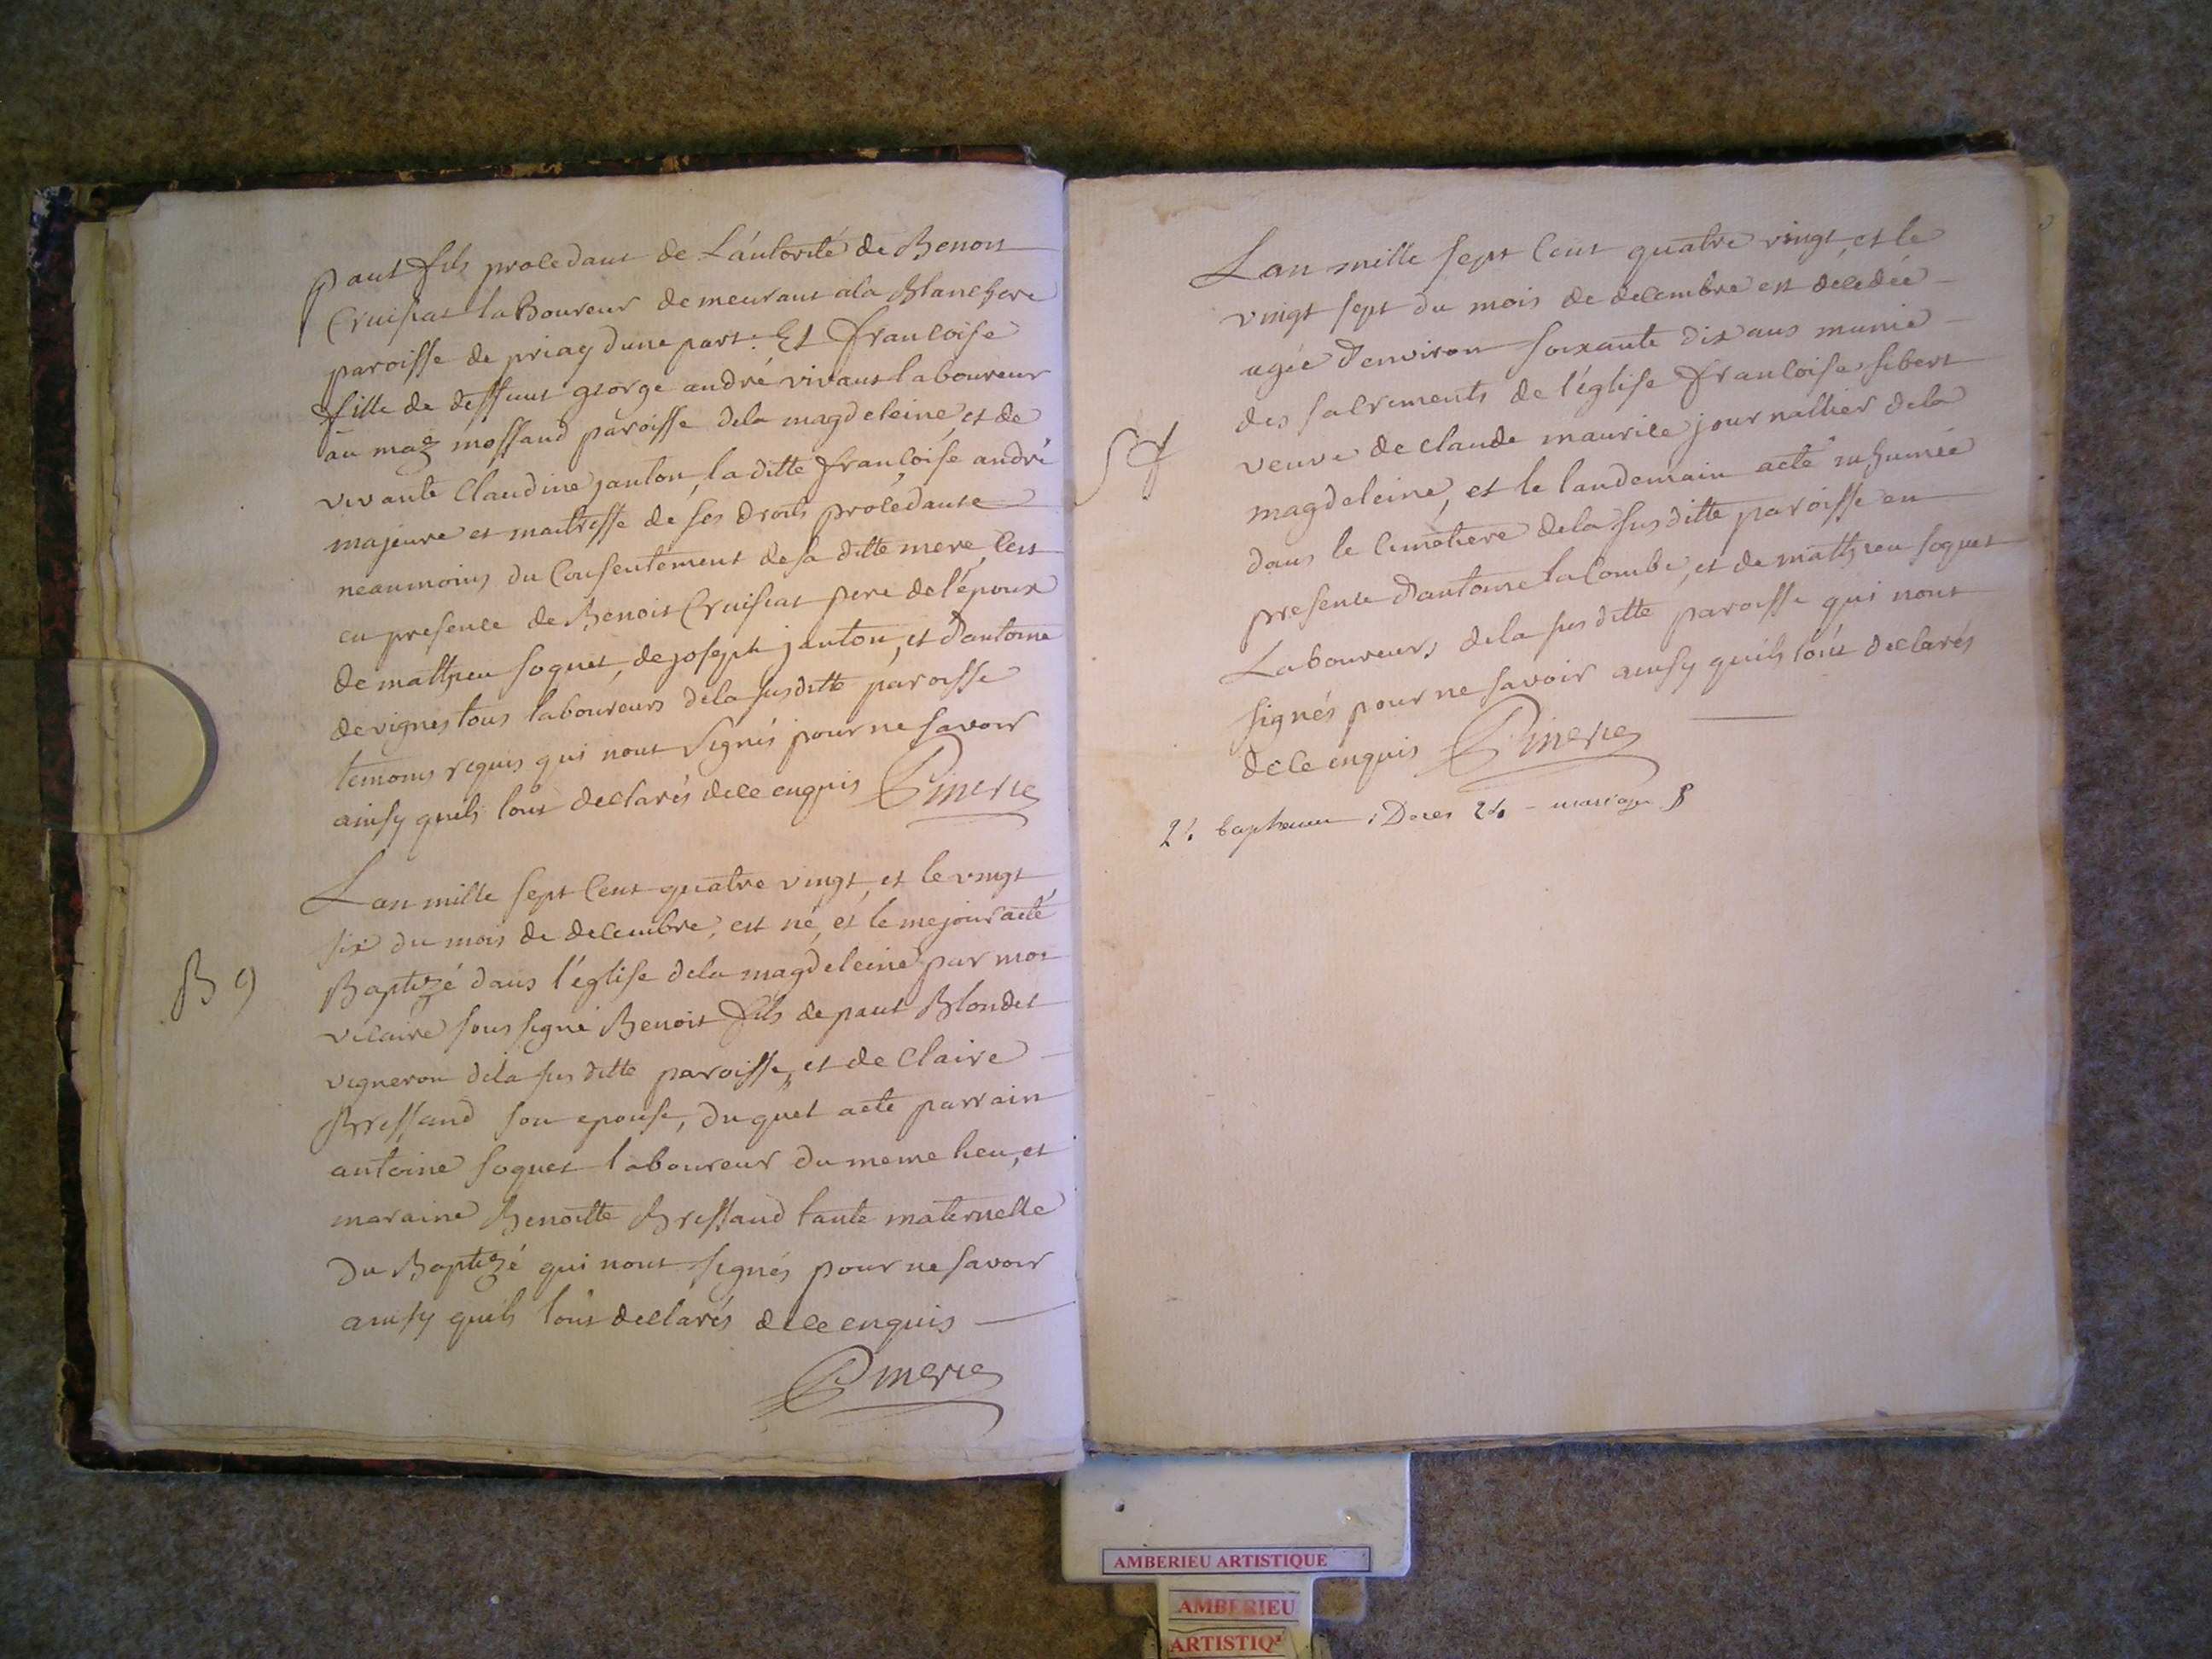 paul fils procedant de L'autorité de Benoit
Cruisiat laBoureur demeurant ala Blanchere
paroisse de priay dune part. Et francoise
fille de deffunt george andré vivant laboureur
au maz mossand paroisse dela magdeleine, et de
vivante Claudine janton, la ditte francoise andré
majeure et maitresse de ses droits procédante
neaumoins du Consentement de sa ditte mere, Cest
en presence de Benoit Cruisiat pere de l'époux
de mathieu soquet, de joseph janton, et d'antoine
devignes tous laboureurs dela susditte paroisse
temoins requis qui nont signés pour ne savoir
ainsy quils lont declarés dece enquis Pimerie
Lan mille sept Cent quatre vingt, et le vingt
six du mois de decembre, est né, et le mejour aeté
B 9
Baptizé dans l'église dela magdeleine par moi
vicaire soussigné Benoit fils de paul Blondet
vigneron dela susditte paroisse, et de Claire
Bressand son epouse, duquel aeté parrain
antoine soquet laboureur du meme lieu, et
maraine Benoitte Bressand tante maternelle
du Baptizé qui nont signés pour ne savoir
ainsy quils lont declarés dece enquis
Pimerie
Lan mille sept Cent quatre vingt, et le
vingt sept du mois de decembre est décédée
agée d'environ soixante dix ans munie
des sacrements de l'église francoise sibert
veuve de claude maurice journallier dela
magdeleine, et le landemain aeté inhumée
dans le Cimetiere dela susditte paroisse en
presence d'antoine laCombe, et de mathieu soquet
Laboureurs dela susditte paroisse qui nont
signés pour ne savoir ainsy quils lont declarés
dece enquis Pimerie
24 baptemes, Deces 24 - mariages 8
AMBERIEU ARTISTIQUE
AMBERIEU
ARTISTIQ